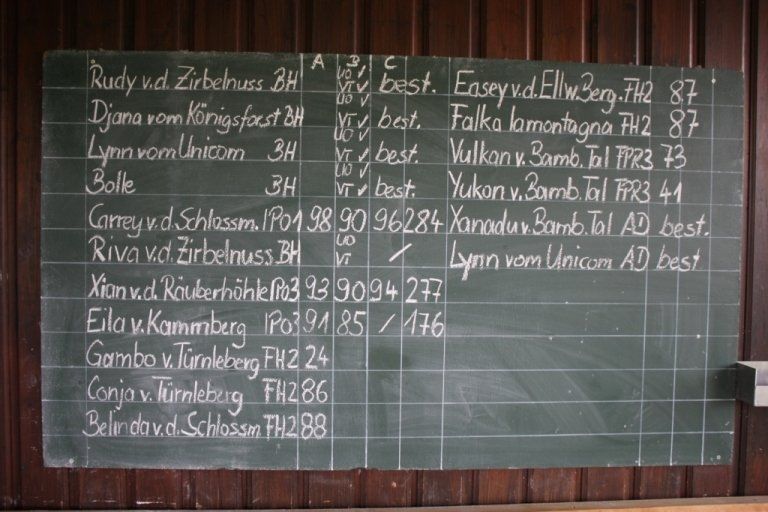 A B C
Rudy v.d. Zirbelnuss BH UO ✓ VT ✓ best.
Djana vom Königsforst BH UO ✓ VT ✓ best.
Lynn vom Unicom BH UO ✓ VT ✓ best.
Bolle BH UO ✓ VT ✓ best.
Carrey v.d. Schlossm. IPO1 98 90 96 284
Riva v.d. Zirbelnuss BH UO VT /
Xian v.d. Räuberhöhle IPO3 93 90 94 277
Eila v. Kammberg IPO3 91 85 / 176
Gambo v. Türnleberg FH2 24
Conja v. Türnleberg FH2 86
Belinda v.d. Schlossm FH2 88
Easey v.d. Ellw. Berg. FH2 87
Falka lamontagna FH2 87
Vulkan v. Bamb. Tal FPR3 73
Yukon v. Bamb. Tal FPR3 41
Xanadu v. Bamb. Tal AD best.
Lynn vom Unicom AD best